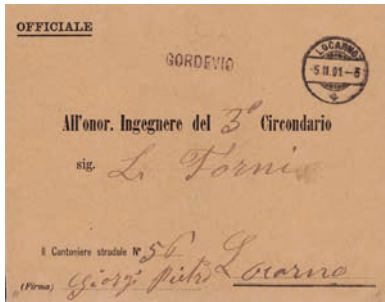 OFFICIALE
GORDEVIO
LOCARNO
-5.II.01-8
All'onor. Ingegnere del 3º Circondario
sig. L. Forni
Il Cantoniere stradale Nº 56
Locarno
(Firma) Giorgi Pietro